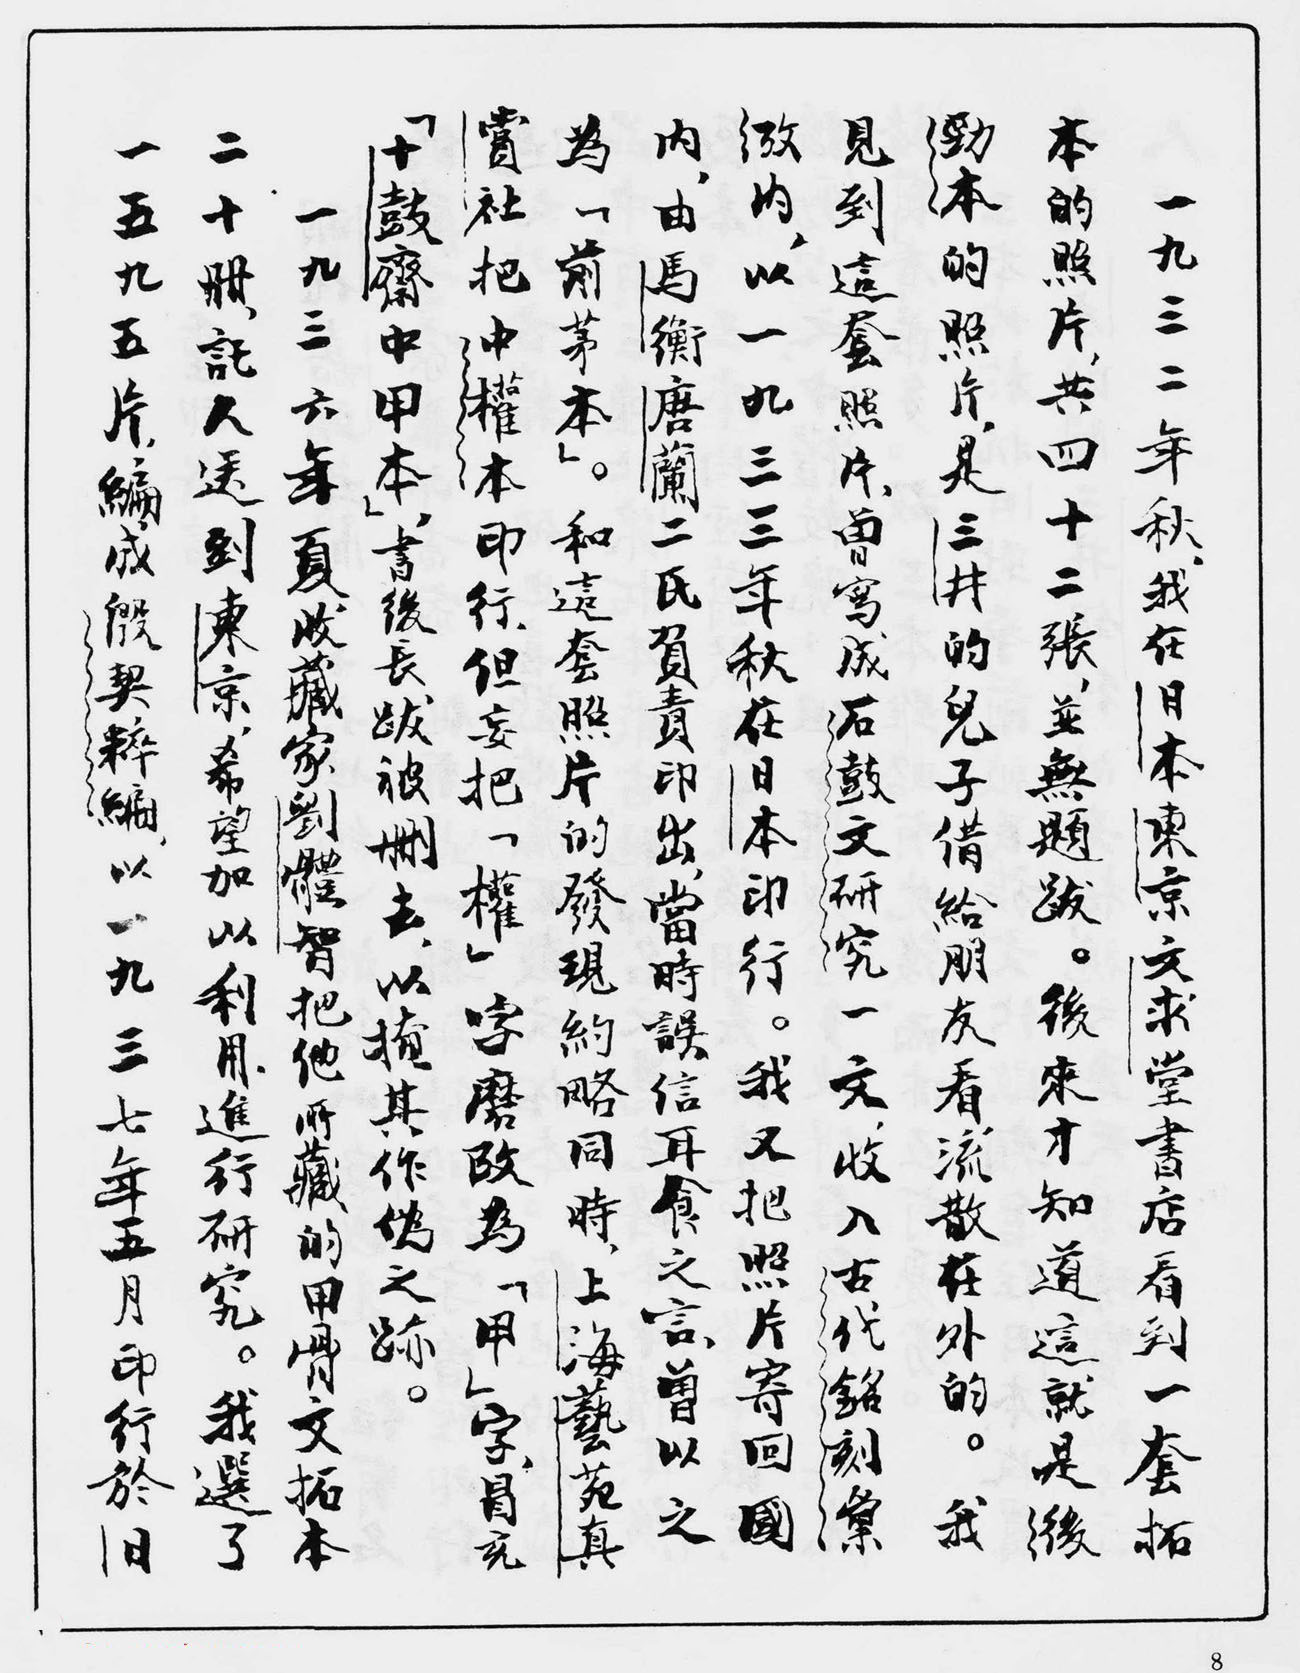 一九三二年秋,我在日本東京文求堂書店看到一套拓
本的照片,共四十二張,並無題跋。後來才知道這就是後
勁本的照片,是三井的兒子借給朋友看,流散在外的。我
見到這套照片,曾寫成石鼓文研究一文,收入古代銘刻彙
攷内,以一九三三年秋在日本印行。我又把照片寄回國
内,由馬衡唐蘭二氏負責印出,當時誤信耳食之言,曾以之
為「前茅本」。和這套照片的發現約略同時,上海藝苑真
賞社把中權本印行,但妄把「權」字磨改為「甲」字,冒充
「十鼓齋中甲本」,書後長跋被刪去,以掩其作偽之跡。
一九三六年夏,收藏家劉體智把他所藏的甲骨文拓本
二十冊,託人送到東京,希望加以利用,進行研究。我選了
一五九五片,編成殷契粹編,以一九三七年五月印行於日
8